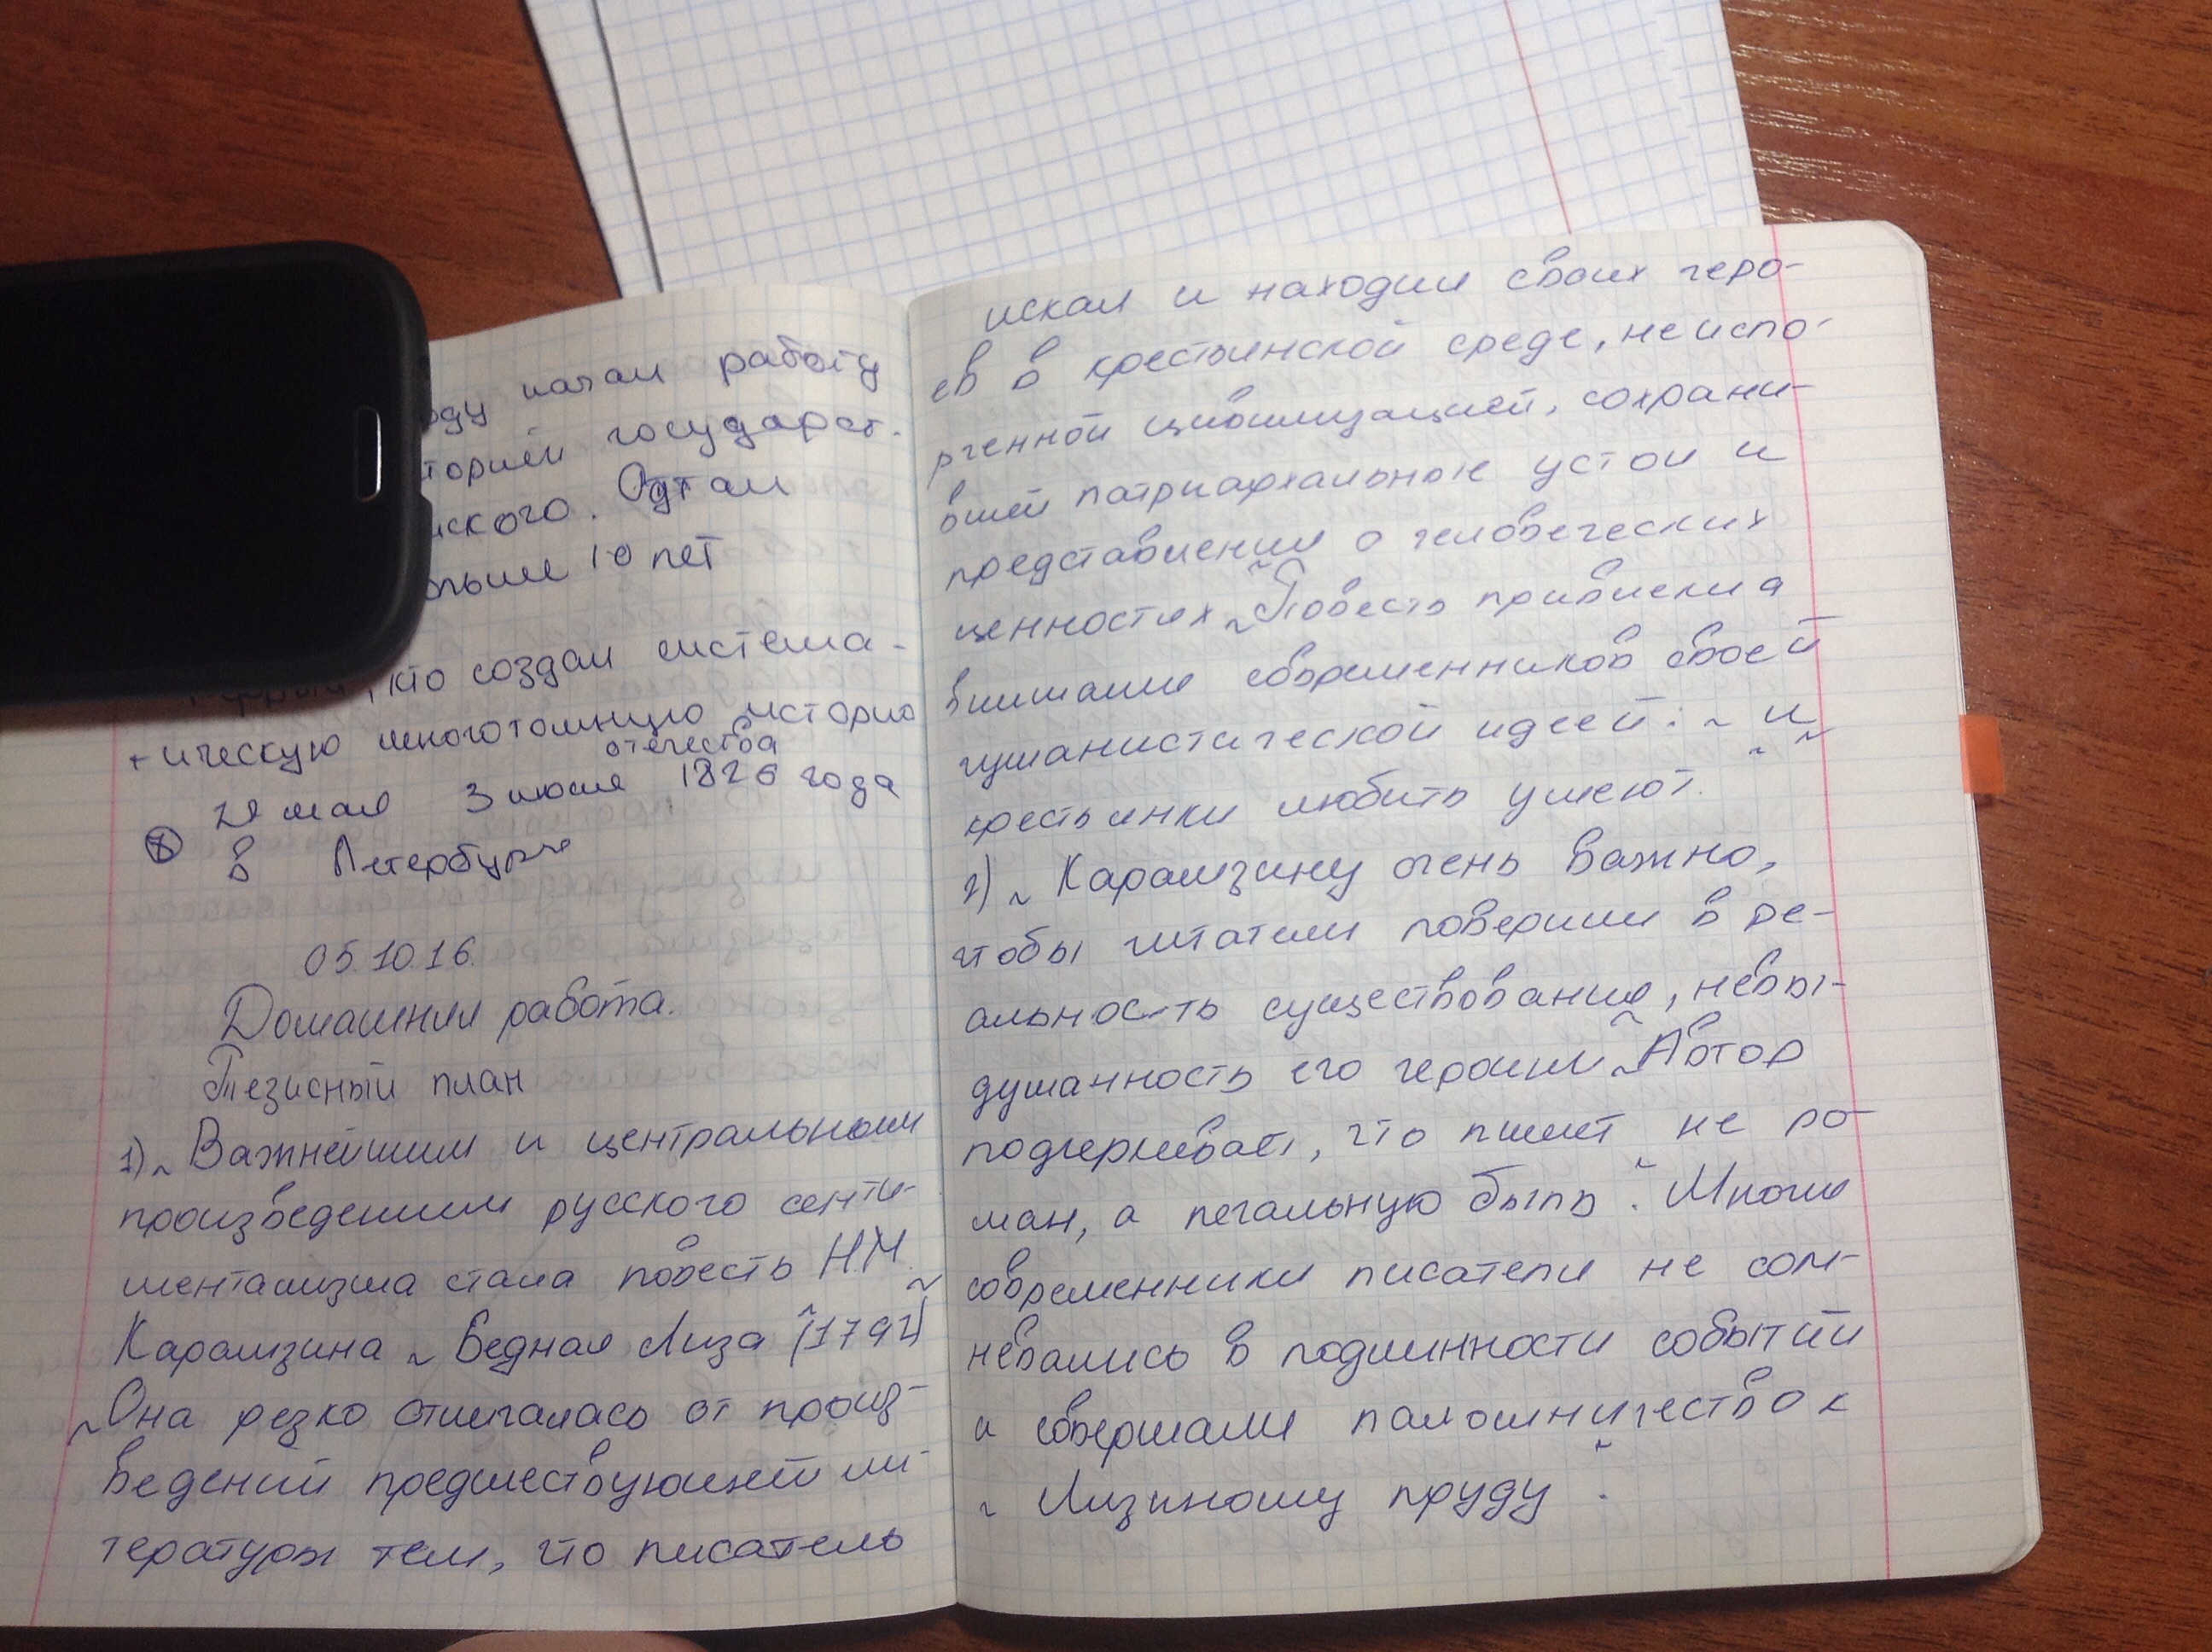 начал работу
государст-
ского. Отдал
10 лет
, кто создал система-
тическую многотомную историю
отечества
3 июня 1826 года
в Петербурге
05.10.16.
Домашняя работа.
Тезисный план
1) „Важнейшим и центральным
произведением русского сенти-
ментализма стала повесть Н.М.
Карамзина „Бедная Лиза" (1792)
„Она резко отличалась от произ-
ведений предшествующей ли-
тературы тем, что писатель
искал и находил своих геро-
ев в крестьянской среде, не испо-
рченной цивилизацией, сохрани-
вшей патриархальные устои и
представления о человеческих
ценностях". „Повесть привлекла
внимание современников своей
гуманистической идеей: „и"
крестьянки любить умеют".
2) „Карамзину очень важно,
чтобы читатели поверили в ре-
альность существования, невы-
душанность его героини". „Автор
подчеркивает, что пишет не ро-
ман, а печальную быль". Многие
современники писателя не сом-
невались в подлинности событий
и совершали паломничество к
„Лизиному пруду".